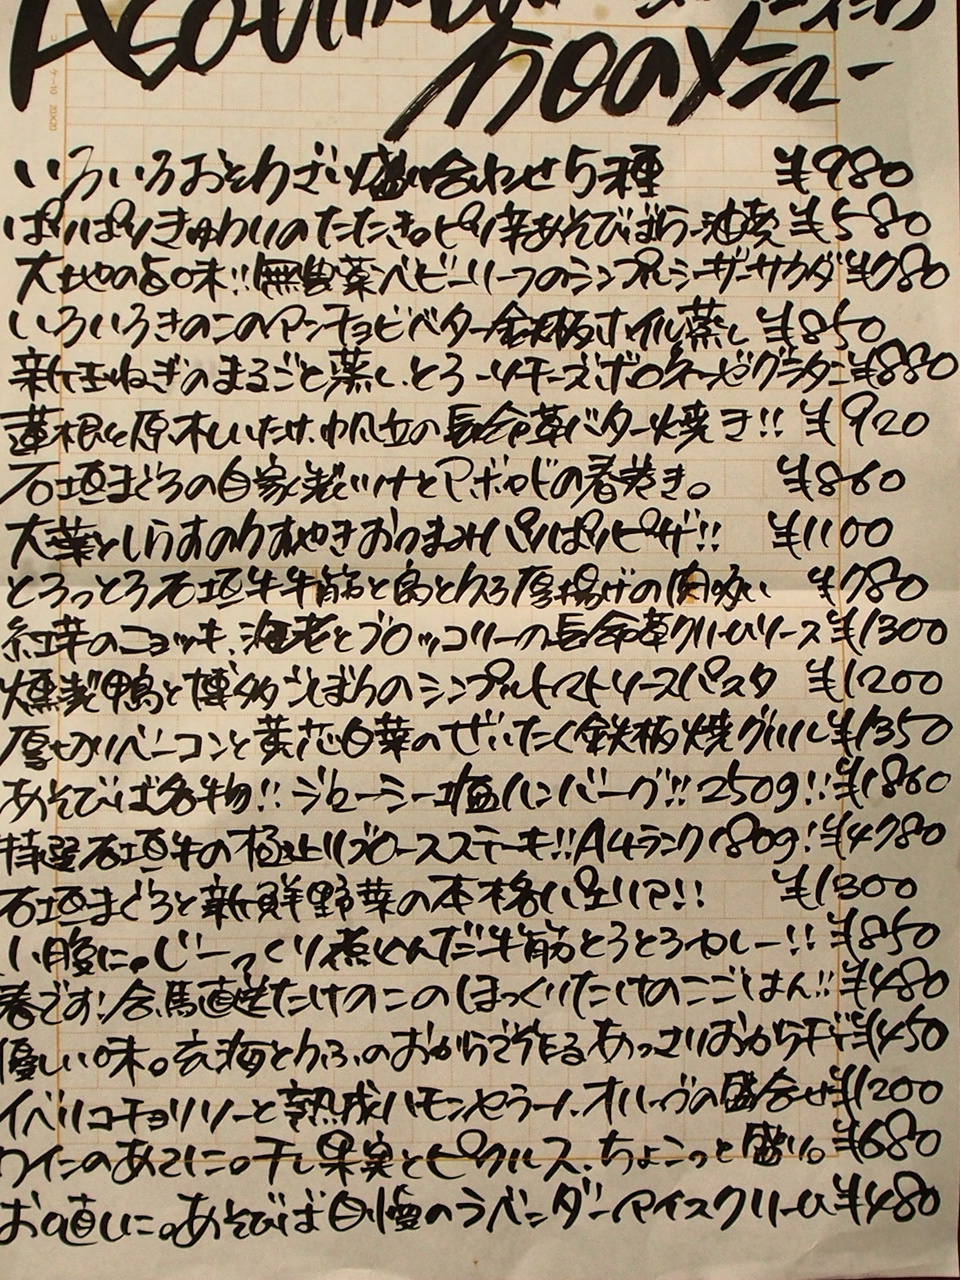 今日のメニュー
いろいろおそうざい盛り合わせ5種 ¥980
ぱりぱりきゅうりのたたき。ピリ辛あそびばらー油奏 ¥580
大地の旨味!!無農薬ベビーリーフのシンプルシーザーサラダ ¥780
いろいろきのこのアンチョビバター鉄板ホイル蒸し ¥850
新玉ねぎのまるごと蒸し、とろーりチーズボロネーゼグラタン ¥880
蓮根と原木しいたけ、帆立の長命草バター焼き!! ¥920
石垣まぐろの自家製づけとアボカドの春巻き。 ¥860
大葉としらすのりすやきおつまみパリぱりピザ!! ¥1100
とろっとろ石垣牛牛筋と島とうふ厚揚げの肉吸い ¥780
紅芋のニョッキ、海老とブロッコリーの長命草クリームソース ¥1300
燻製鴨と博多ごぼうのシンプルトマトソースパスタ ¥1200
厚切りベーコンと黄芯白菜のぜいたく鉄板焼グリル ¥1350
あそびば名物!!ジューシー塩ハンバーグ!!250g!! ¥1860
特選石垣牛の極上リブロースステーキ!!A4ランク180g! ¥4780
石垣まぐろと新鮮野菜の本格パエリア!! ¥1300
小腹に。じーっくり煮込んだ牛筋とろとろカレー!! ¥850
春です!合馬直送たけのこのほっくりたけのこごはん!! ¥480
優しい味。玄海とうふのおからで作るあっさりおからチヂミ ¥450
イベリコチョリソーと熟成ハモンセラーノ、オリーヴの盛合せ ¥1200
ワインのあてに。干し果実とピクルス、ちょこっと盛り。 ¥680
お口直しに。あそびば自慢のラベンダーアイスクリーム ¥480